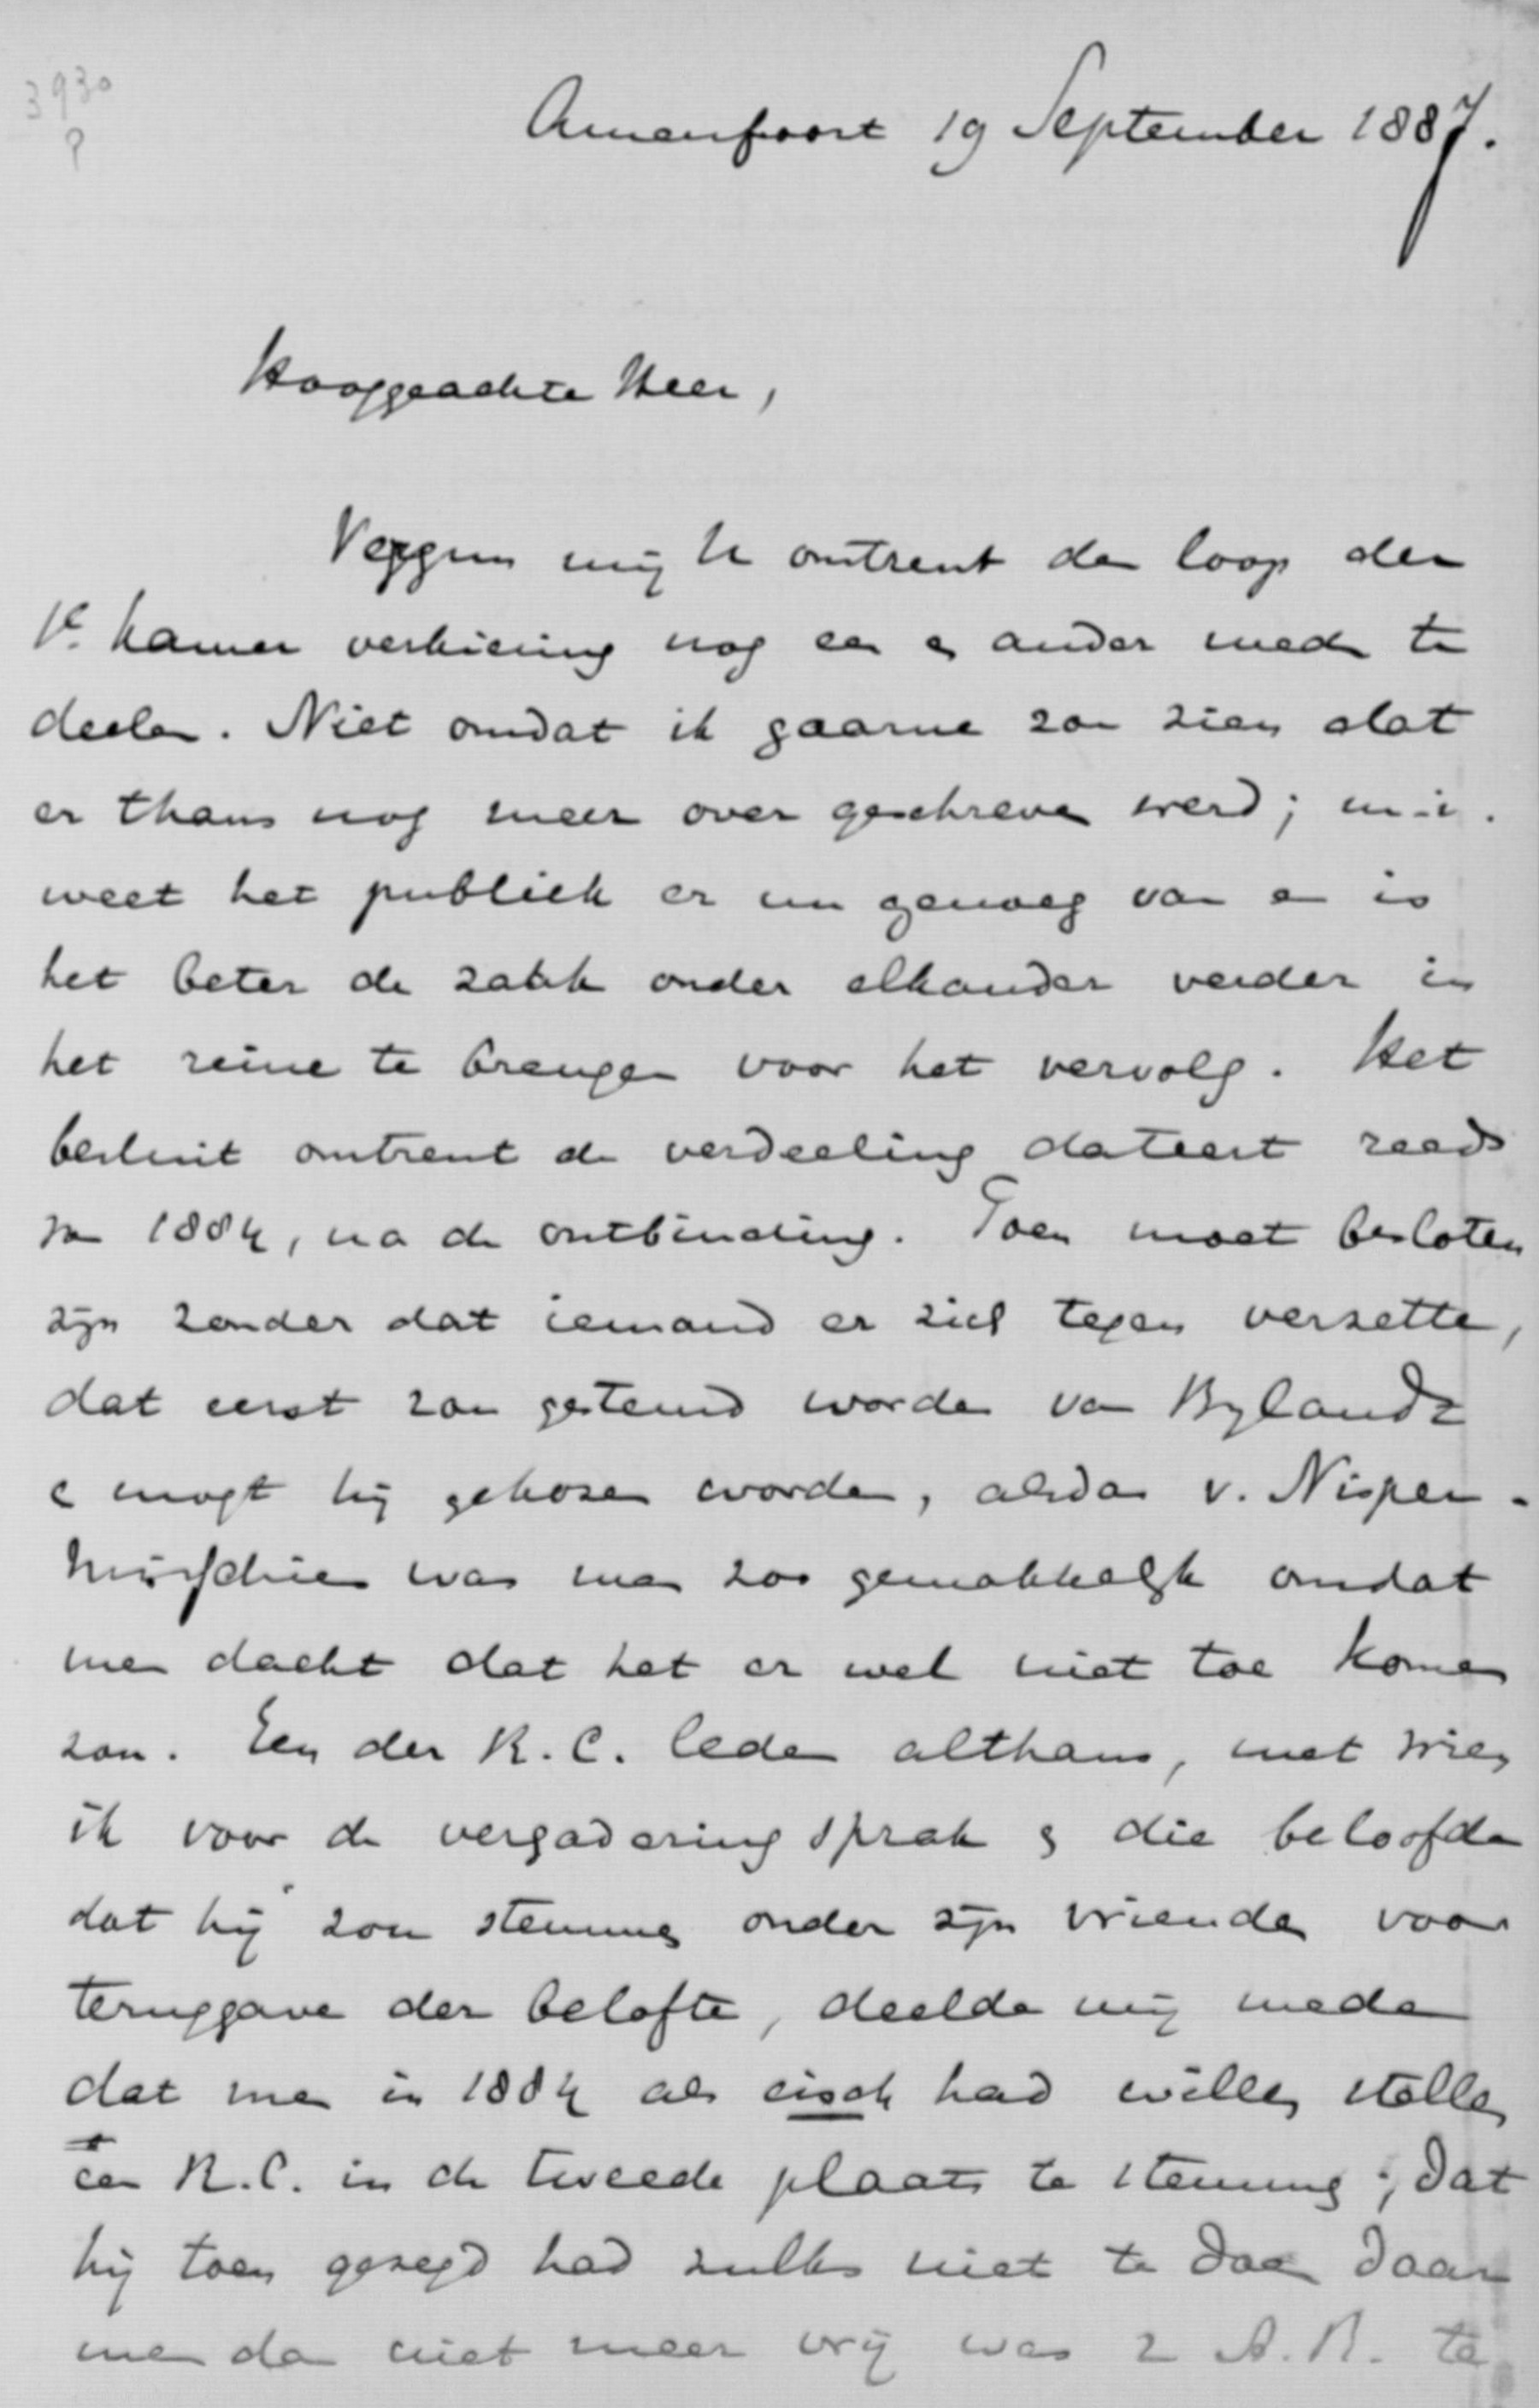 3930
P
Amersfoort 19 September 1887.
Hooggeachte Heer,
Vergun mij U omtrent den loop der
1e. Kamer verkiezing nog een en ander mede te
deelen. Niet omdat ik gaarne zou zien dat
er thans nog meer over geschreven werd; m.i.
weet het publiek er nu genoeg van en is
het beter de zaak onder elkander verder in
het reine te brengen voor het vervolg. Het
besluit omtrent de verdeeling dateert reeds
van 1884, na de ontbinding. Toen moet besloten
zijn zonder dat iemand er zich tegen verzette,
dat eerst zou gestemd worden van Bylandt
en mogt hij gekozen worden, alsdan v. Nispen.
Misschien was men zoo gemakkelijk omdat
men dacht dat het er wel niet toe komen
zou. Een der R.C. leden althans, met wien
ik voor de vergadering sprak en die beloofde
dat hij zou stemmen onder zijn vrienden voor
teruggave der belofte, deelde mij mede
dat men in 1884 als eisch had willen stellen
een R.C. in de tweede plaats te stemmen; dat
hij toen gezegd had zulks niet te doen daar
men dan niet meer vrij was 2 A.R. te